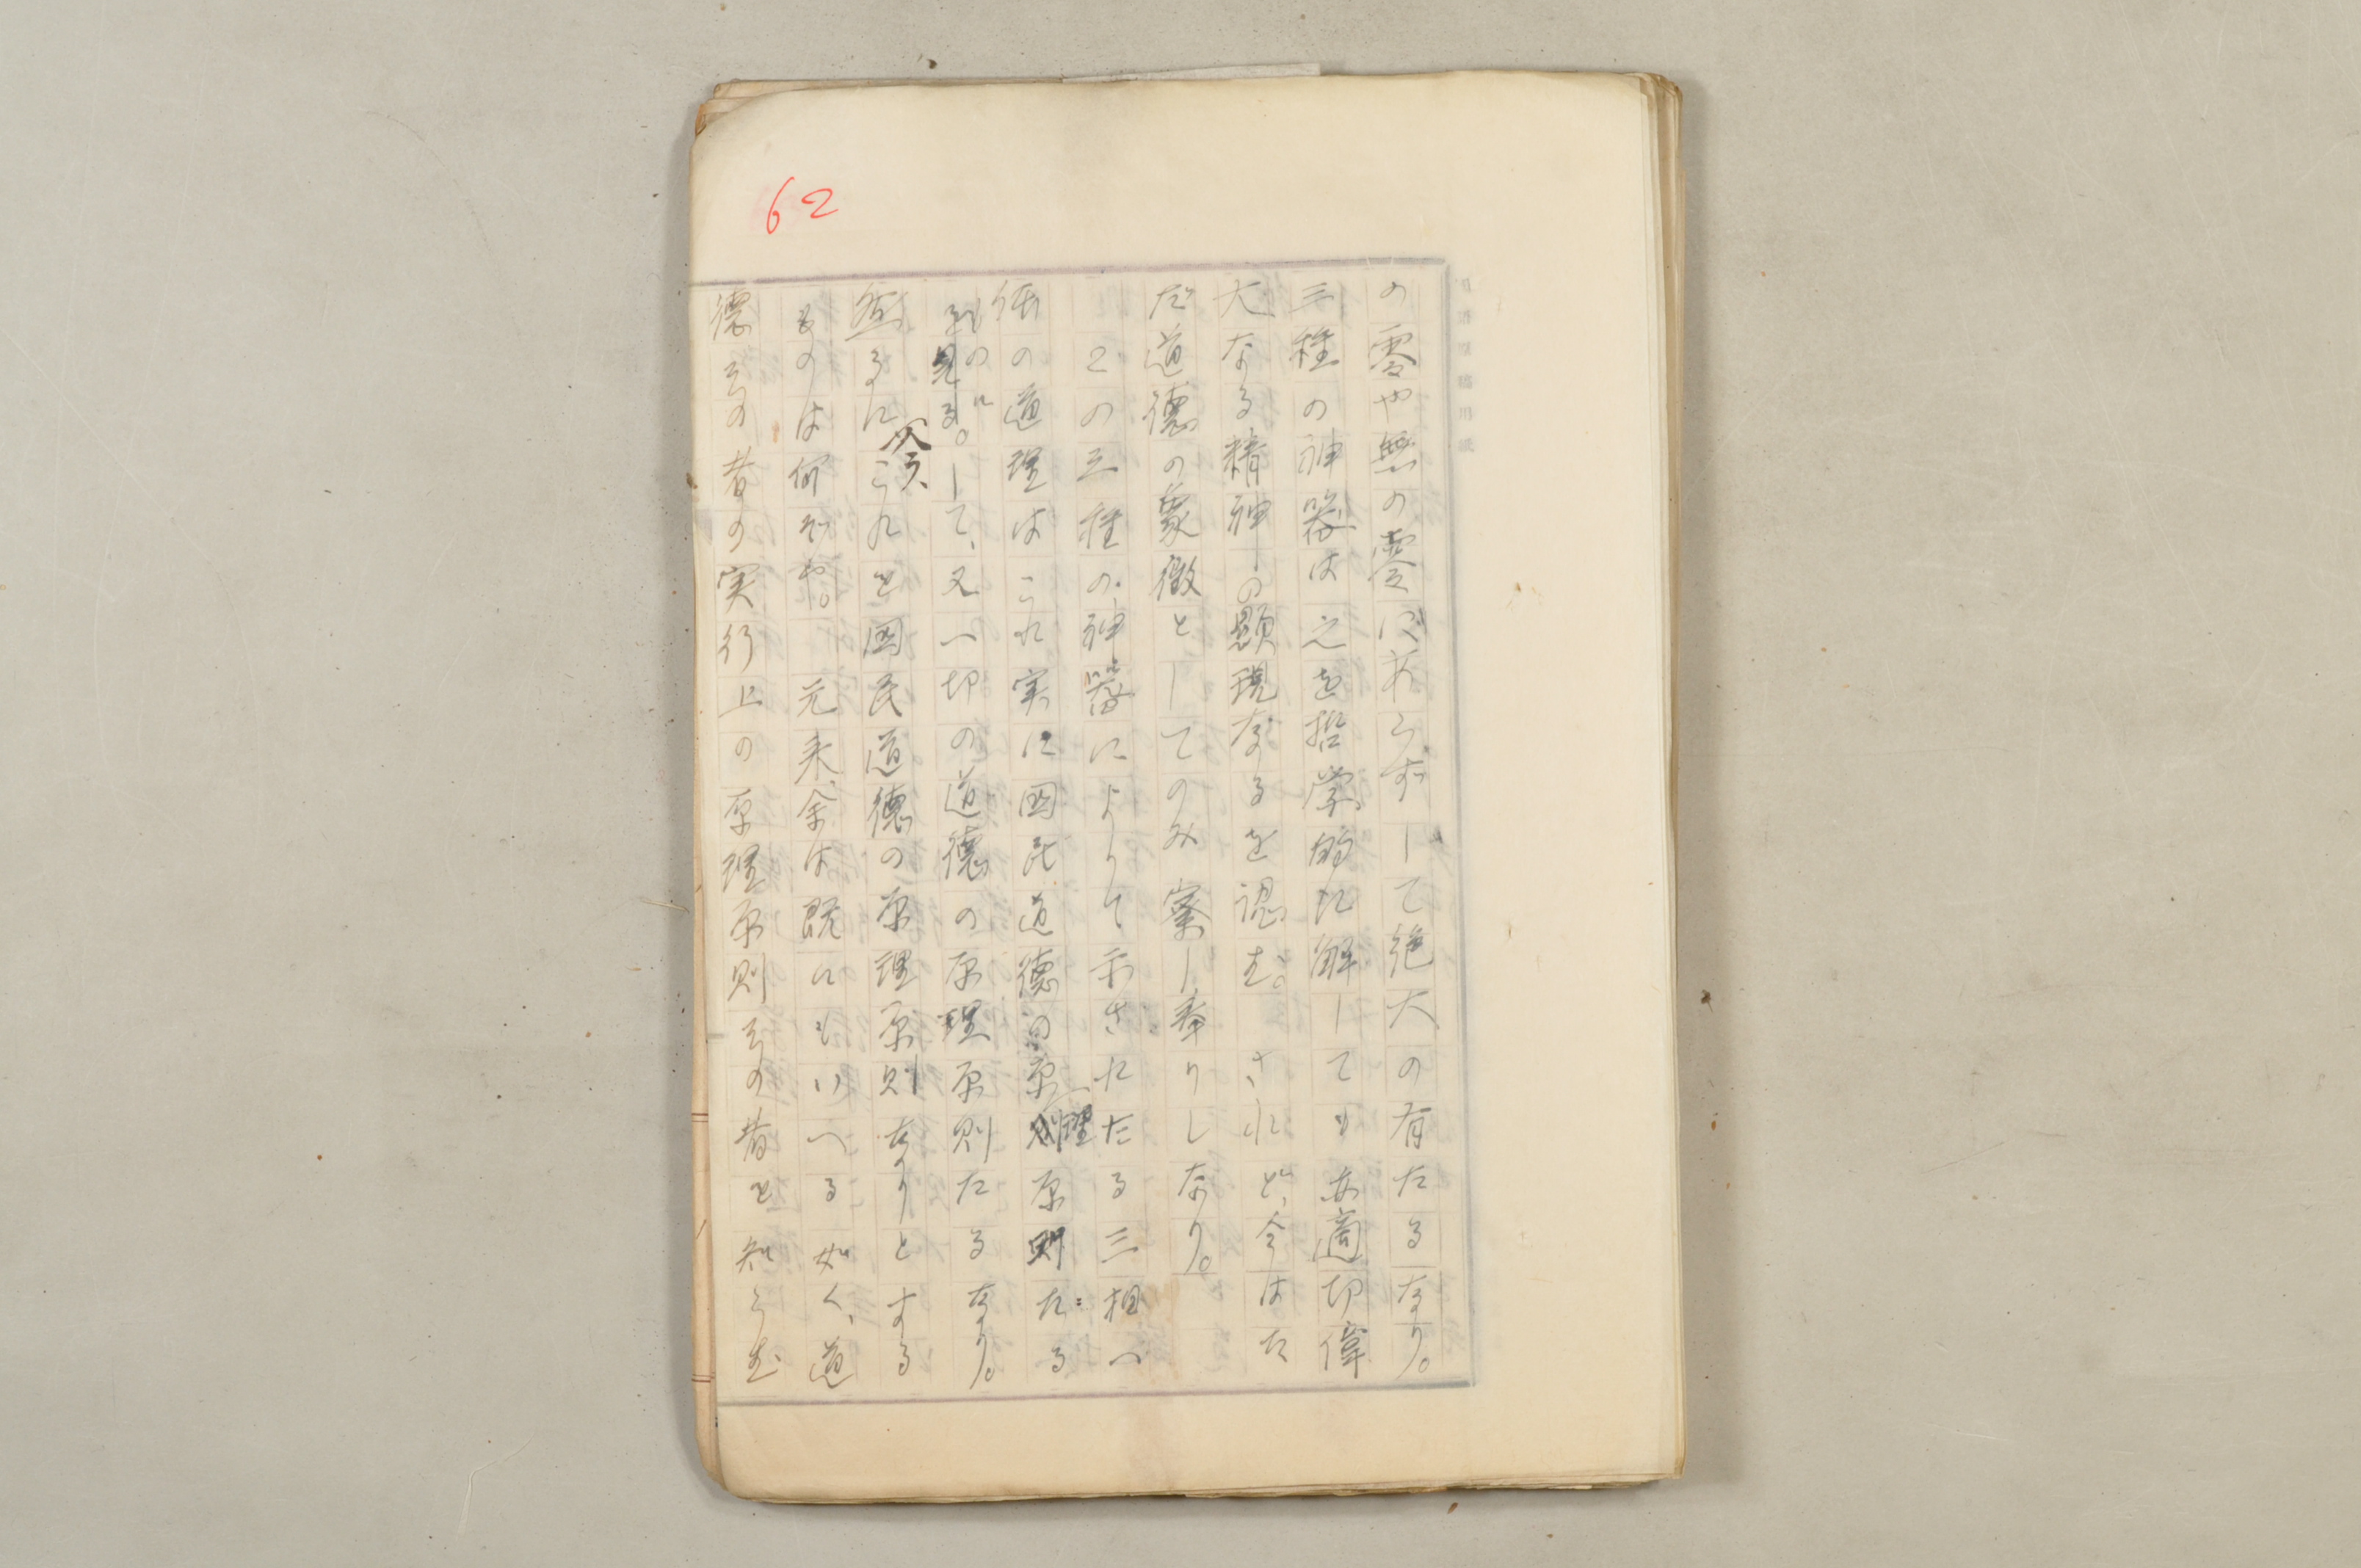 62
の零や無の零にあらずして絶大の有たるなり。
三種の神器は之を哲学的に解しても亦適切偉
大なる精神の顕現なるを認む。されど、今はた
だ道徳の象徴としてのみ察し奉りしなり。
この三種の神器によりて示されたる三相一
体の道理はこれ実に国民道徳の原理原則たる
ものに
見る。して、又一切の道徳の原理原則たるなり。
然るにこれを国民道徳の原理原則なりとする
ものは何ぞや。元来、余は既にもいへる如く、道
徳その者の実行上の原理原則その者を知らむ